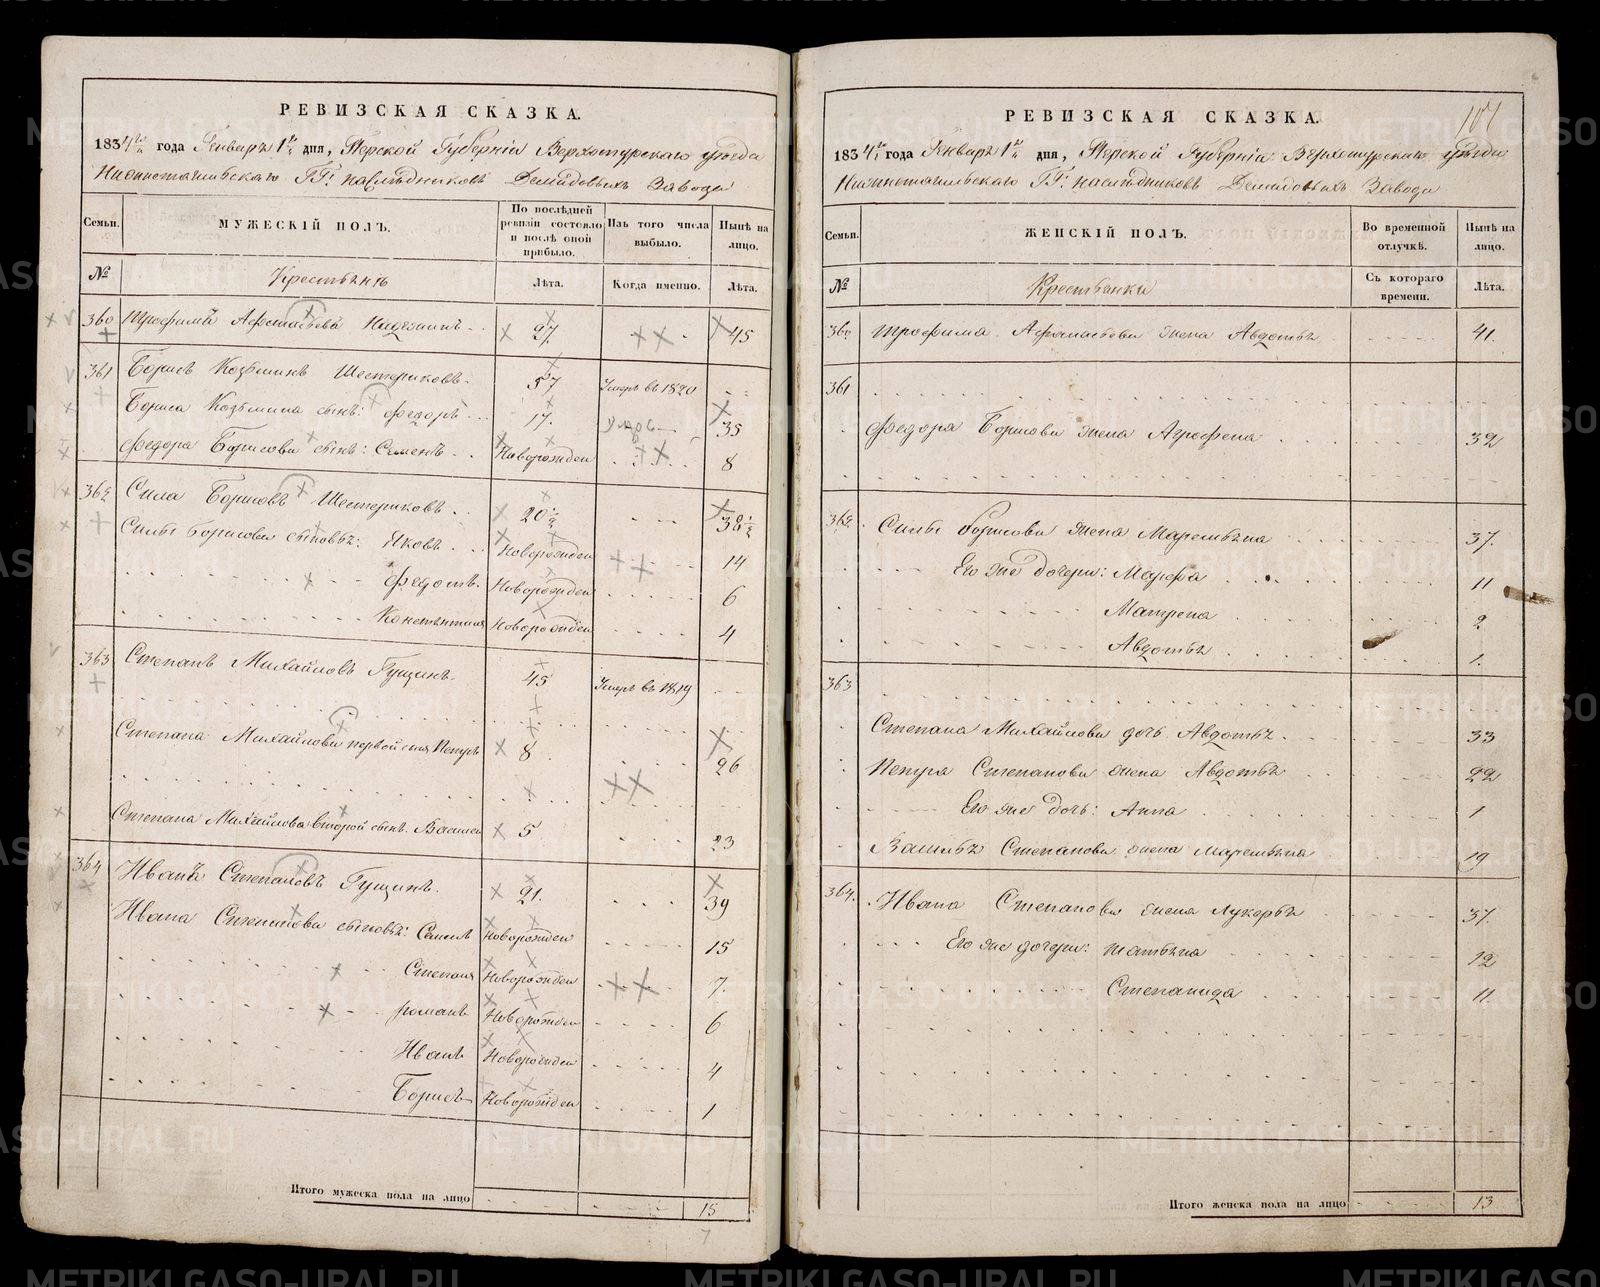 РЕВИЗСКАЯ СКАЗКА.
1834го года Генваря 1го дня, Пермской Губерніи Верхотурскаго уѣзда
Нижнетагильскаго ГГ: наслѣдниковъ Демидовыхъ Завода
Семьи.
МУЖЕСКІЙ ПОЛЪ.
По послѣдней ревизіи состояло и послѣ оной прибыло.
Изъ того числа выбыло.
Нынѣ на лицо.
№
Крестьянъ
Лѣта.
Когда именно.
Лѣта.
360 Трофимъ Афонасьевъ 27. 45
361 Борисъ Козьминъ Шестериковъ. 57 Умеръ въ 1820
Бориса Козьмина сынъ: Федоръ 17. 35
Федора Борисова сынъ: Семенъ Новорожден 8
362 Сила Борисовъ Шестериковъ. 20½ 38½
Силы Борисова сыновья: Яковъ Новорожден 14
Федотъ. Новорожден 6
Константинъ Новорожден 4
363 Степанъ Михайловъ Гущинъ. 45 Умеръ въ 1819
Степана Михайлова первой сынъ Петръ 8 26
Степана Михайлова второй сынъ. Василей 5 23
364 Иванъ Степановъ Гущинъ. 21. 39
Ивана Степанова сыновья: Семенъ Новорожден 15
Степанъ Новорожден 7.
Романъ Новорожден 6
Иванъ Новорожден 4
Борисъ Новорожден 1
Итого мужеска пола на лицо 15
7
107
РЕВИЗСКАЯ СКАЗКА.
1834го года Генваря 1го дня, Пермской Губерніи Верхотурскаго уѣзда
Нижнетагильскаго ГГ: наслѣдниковъ Демидовыхъ Завода
Семьи.
ЖЕНСКІЙ ПОЛЪ.
Во временной отлучкѣ.
Нынѣ на лицо.
№
Крестьянки
Съ котораго времени.
Лѣта.
360. Трофима Афонасьева жена Авдотья 41.
361
Федора Борисова жена Агрофена 32
362. Силы Борисова жена Маремьяна 37.
Его же дочери: Марфа 11
Матрена 2
Авдотья 1.
363
Степана Михайлова дочь Авдотья 33
Петра Степанова жена Авдотья 22
Его же дочь: Анна 1
Василья Степанова жена Маремьяна 19
364. Ивана Степанова жена Лукерья 37.
Его же дочери: Татьяна 12
Степанида 11.
Итого женска пола на лицо 13
METRIKI.GASO-URAL.RU